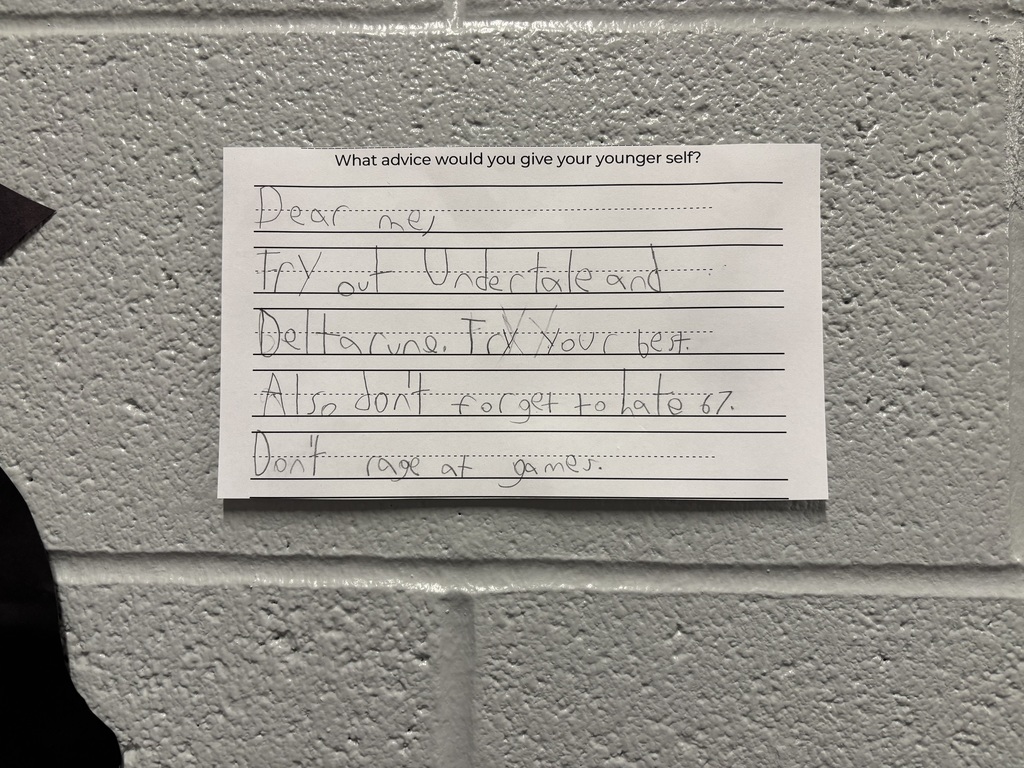 What advice would you give your younger self?
Dear me,
Try out Undertale and
Deltarune. Try Your best.
Also don't forget to hate 67.
Don't rage at games.